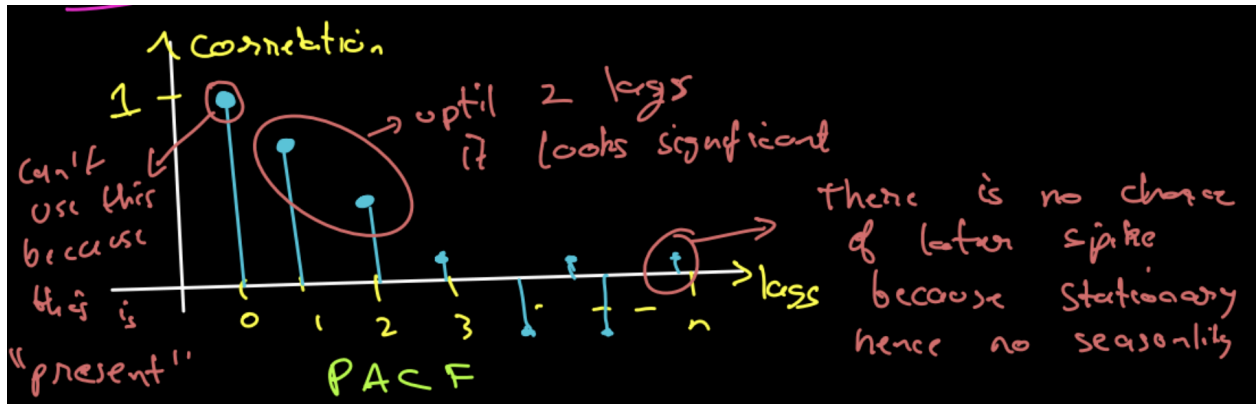 correlation
1
can't
use this
because
this is
"present"
uptil 2 lags
it looks significant
There is no chance
of later spike
because stationary
hence no seasonality
lags
0 1 2 3 . - - n
PACF